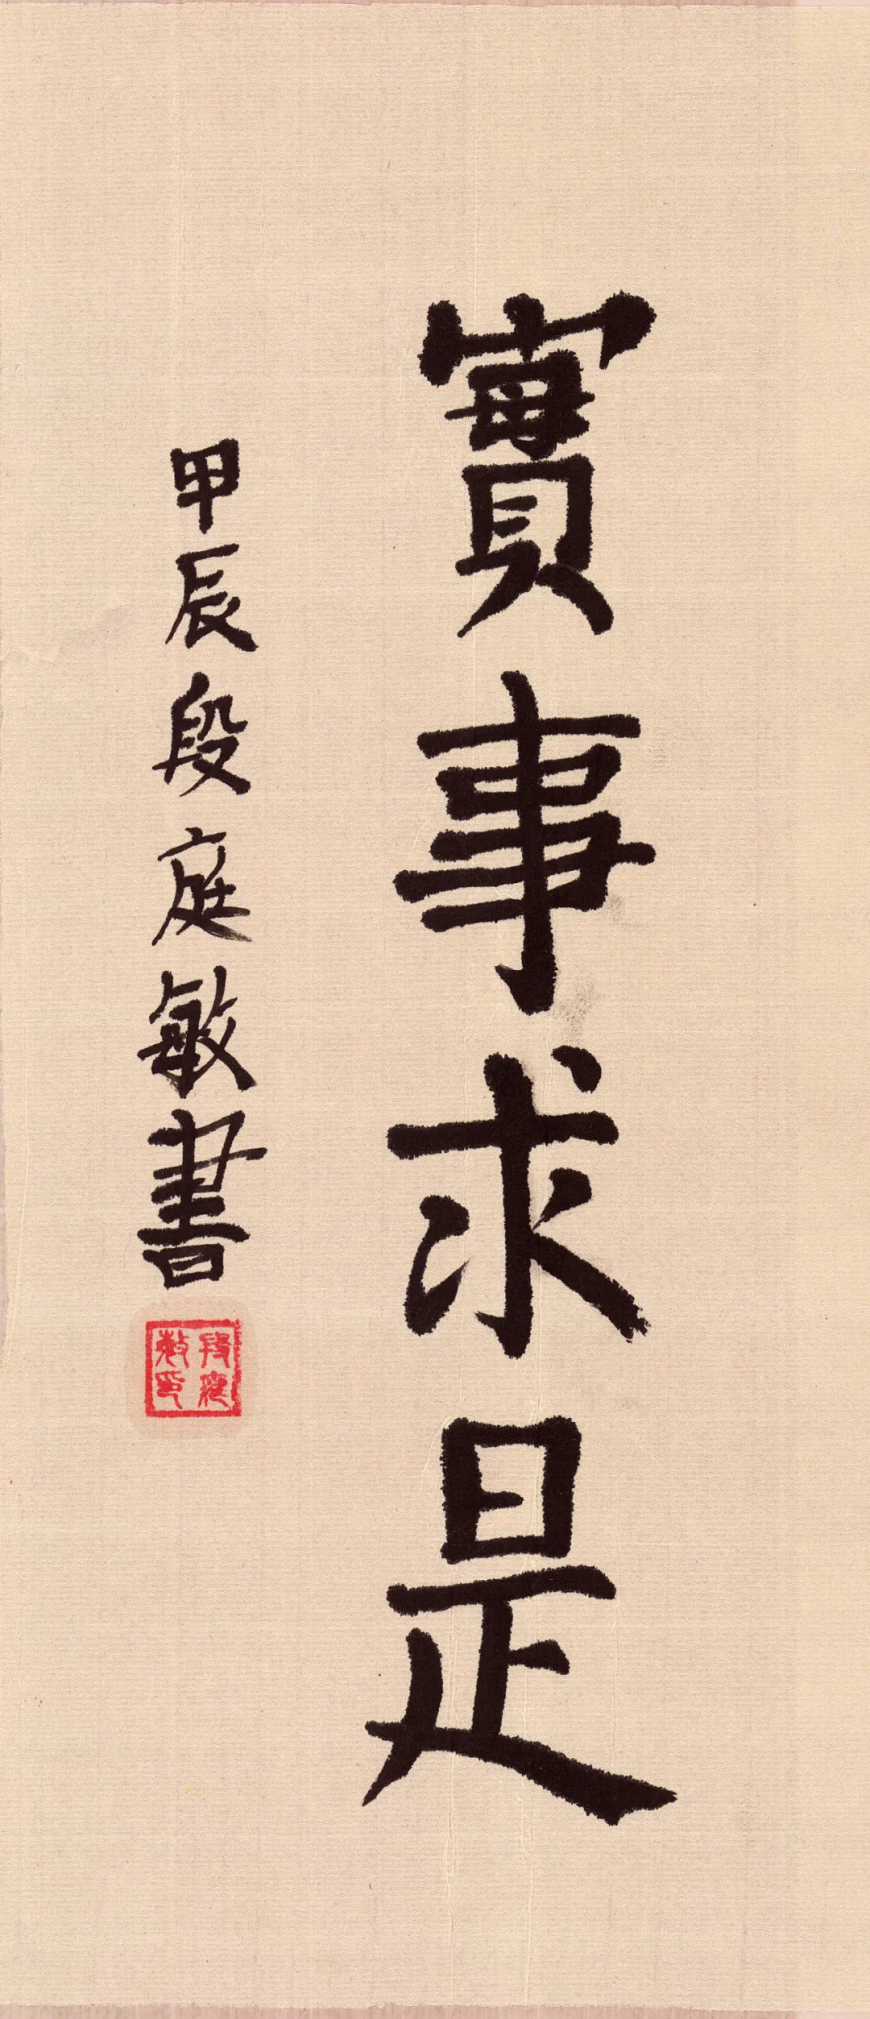 實事求是
甲辰段庭敏書
段庭
敏印